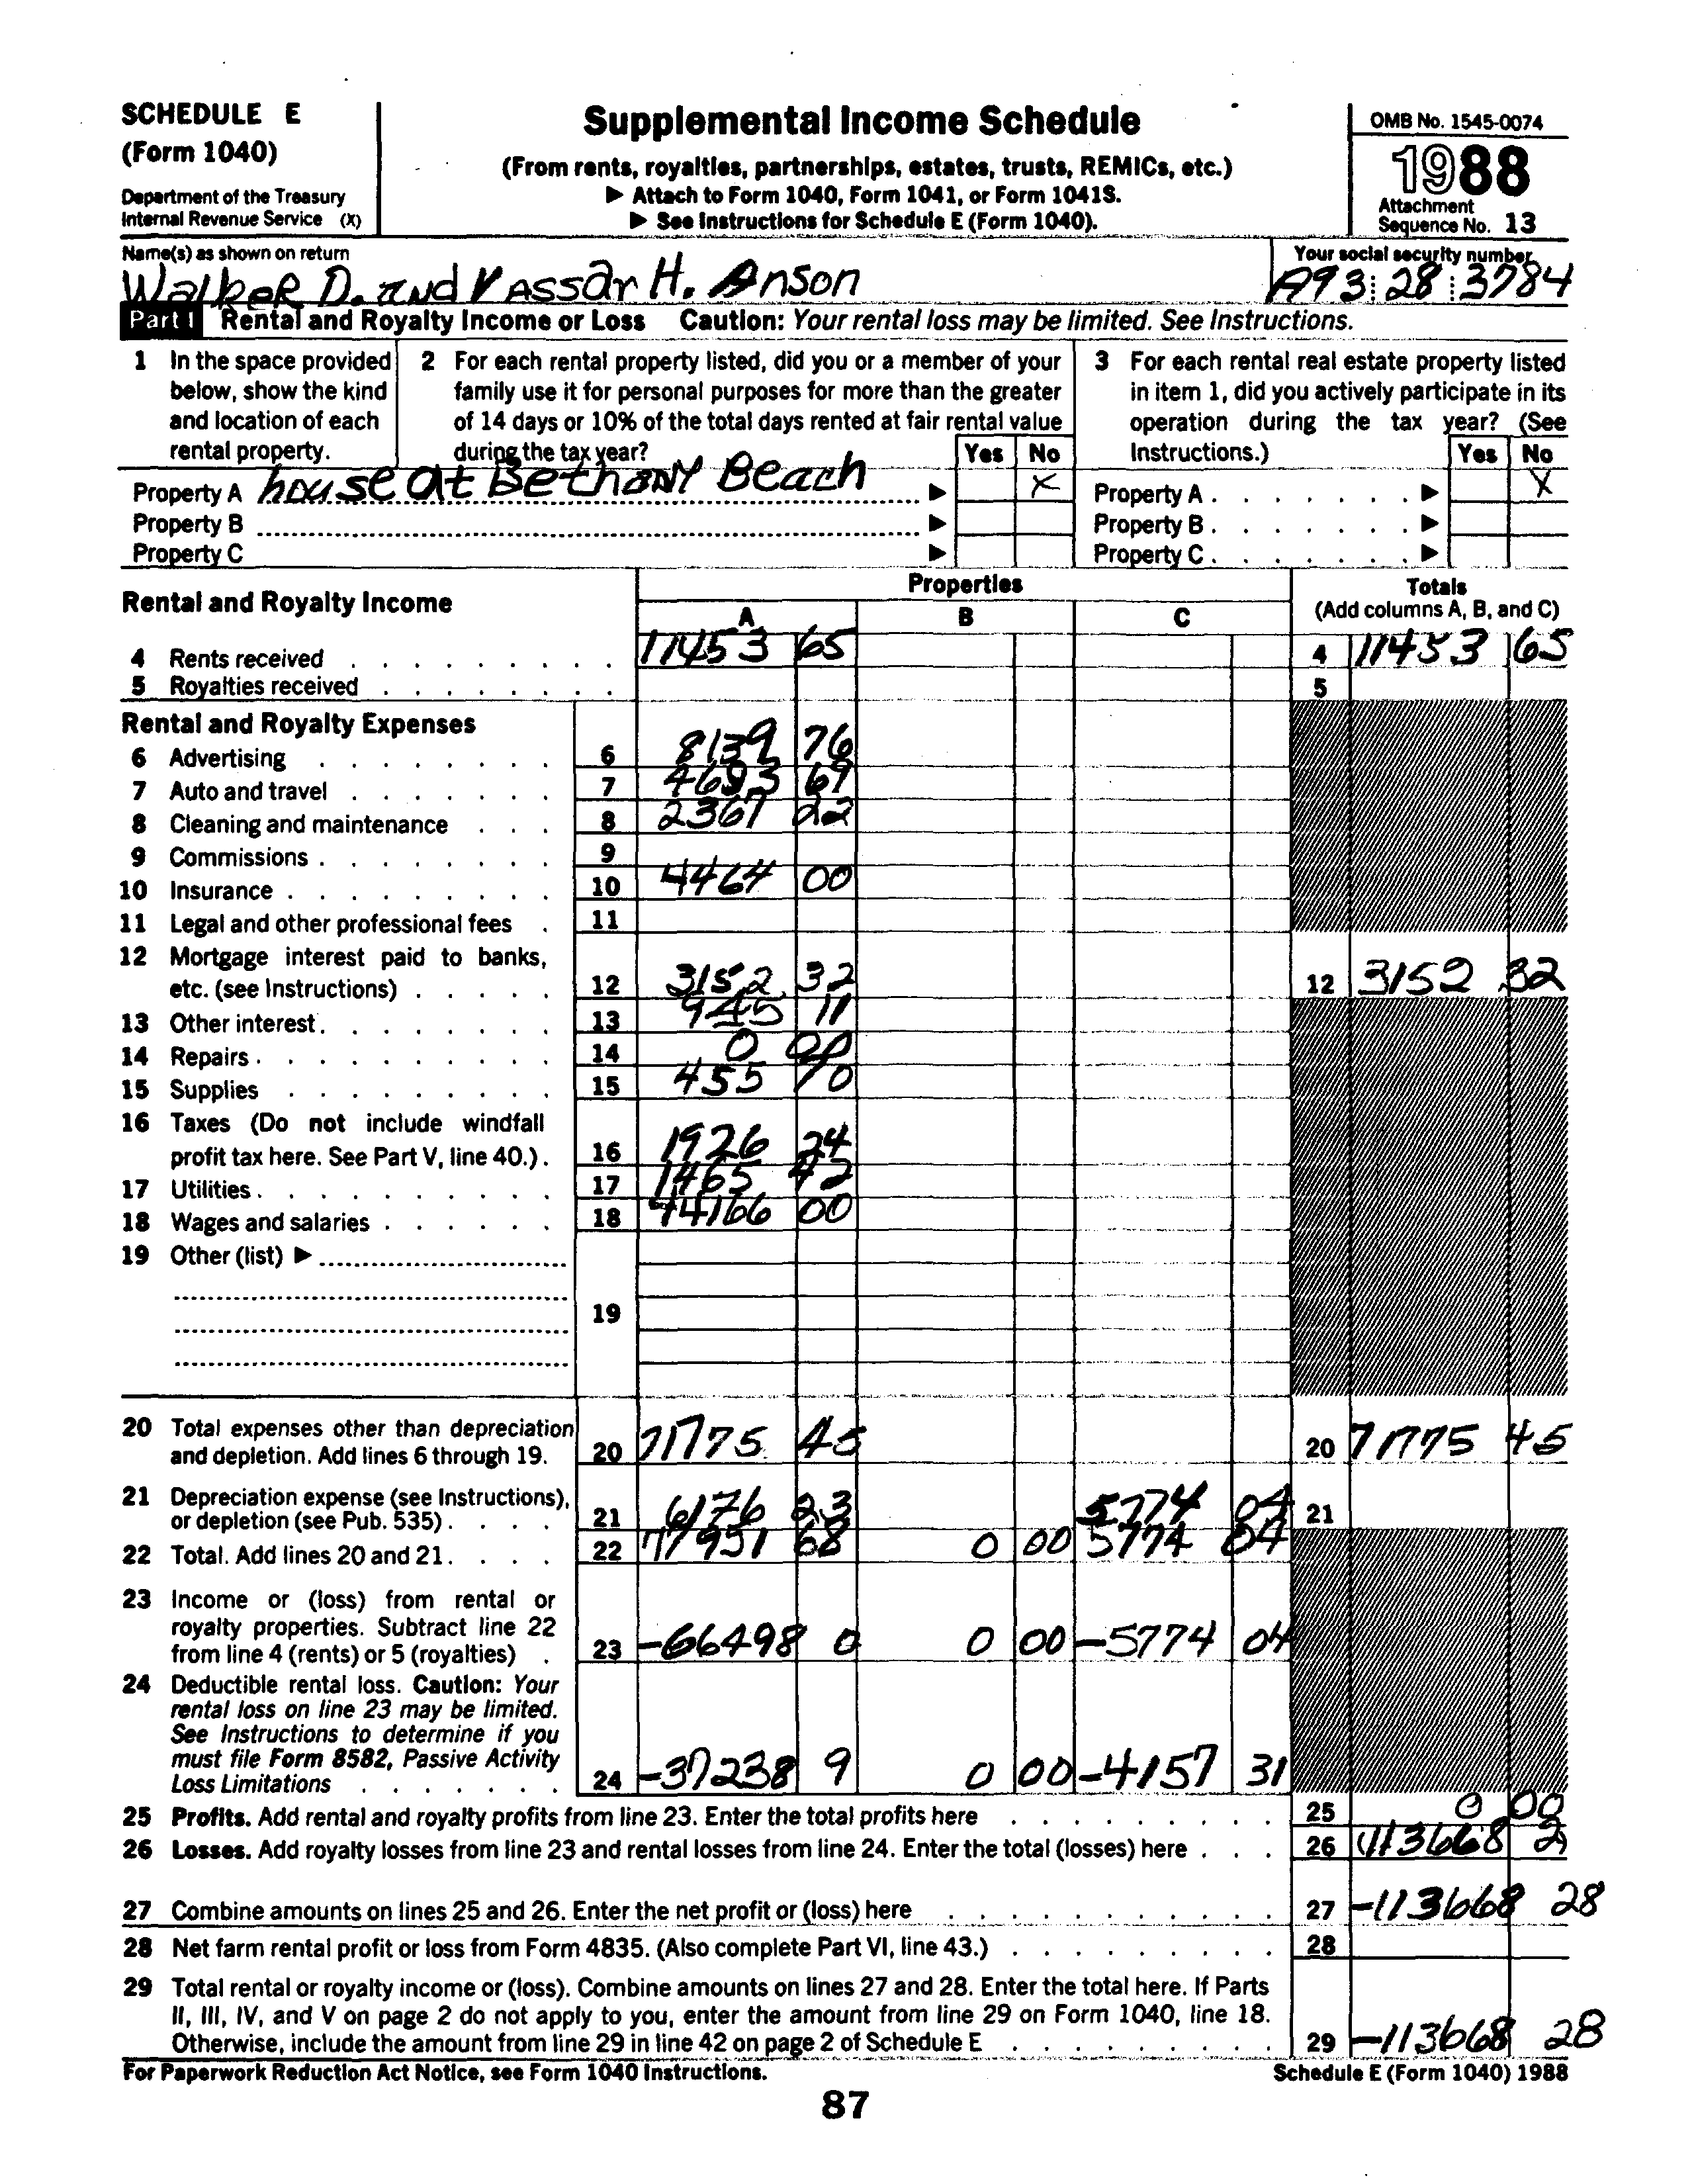 SCHEDULE E
(Form 1040)
Department of the Treasury
Internal Revenue Service (X)
Supplemental Income Schedule
(From rents, royalties, partnerships, estates, trusts, REMICs, etc.)
▶ Attach to Form 1040, Form 1041, or Form 1041S.
▶ See Instructions for Schedule E (Form 1040).
OMB No. 1545-0074
1988
Attachment
Sequence No. 13
Name(s) as shown on return
Walker D. and Vassar H. Anson
Your social security number
A93 28 3784
Part I Rental and Royalty Income or Loss Caution: Your rental loss may be limited. See Instructions.
1 In the space provided
below, show the kind
and location of each
rental property.
2 For each rental property listed, did you or a member of your
family use it for personal purposes for more than the greater
of 14 days or 10% of the total days rented at fair rental value
during the tax year? Yes No
3 For each rental real estate property listed
in item 1, did you actively participate in its
operation during the tax year? (See
Instructions.) Yes No
Property A house at Bethany Beach ▶ X Property A ▶ X
Property B ▶ Property B ▶
Property C ▶ Property C ▶
Rental and Royalty Income
Properties
A B C
Totals
(Add columns A, B, and C)
4 Rents received 11453 65 4 11453 65
5 Royalties received 5
Rental and Royalty Expenses
6 Advertising 6 8139 76
7 Auto and travel 7 4693 69
8 Cleaning and maintenance 8 2367 22
9 Commissions 9
10 Insurance 10 4464 00
11 Legal and other professional fees 11
12 Mortgage interest paid to banks,
etc. (see Instructions) 12 3152 32 12 3152 32
13 Other interest 13 945 11
14 Repairs 14 0 00
15 Supplies 15 455 70
16 Taxes (Do not include windfall
profit tax here. See Part V, line 40.) 16 1926 24
17 Utilities 17 1465 42
18 Wages and salaries 18 44166 00
19 Other (list) ▶
19
20 Total expenses other than depreciation
and depletion. Add lines 6 through 19. 20 71775 45 20 71775 45
21 Depreciation expense (see Instructions),
or depletion (see Pub. 535) 21 6176 23 5774 04 21
22 Total. Add lines 20 and 21 22 77951 68 0 00 5774 04
23 Income or (loss) from rental or
royalty properties. Subtract line 22
from line 4 (rents) or 5 (royalties) 23 -66498 0 0 00 -5774 04
24 Deductible rental loss. Caution: Your
rental loss on line 23 may be limited.
See Instructions to determine if you
must file Form 8582, Passive Activity
Loss Limitations 24 -37238 9 0 00 -4157 31
25 Profits. Add rental and royalty profits from line 23. Enter the total profits here 25 0 00
26 Losses. Add royalty losses from line 23 and rental losses from line 24. Enter the total (losses) here 26 (113668 2
27 Combine amounts on lines 25 and 26. Enter the net profit or (loss) here 27 -113668 28
28 Net farm rental profit or loss from Form 4835. (Also complete Part VI, line 43.) 28
29 Total rental or royalty income or (loss). Combine amounts on lines 27 and 28. Enter the total here. If Parts
II, III, IV, and V on page 2 do not apply to you, enter the amount from line 29 on Form 1040, line 18.
Otherwise, include the amount from line 29 in line 42 on page 2 of Schedule E 29 -113668 28
For Paperwork Reduction Act Notice, see Form 1040 Instructions. Schedule E (Form 1040) 1988
87